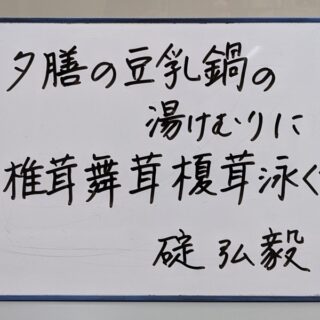 夕膳の豆乳鍋の
湯けむりに
椎茸舞茸榎茸泳ぐ
碇弘毅